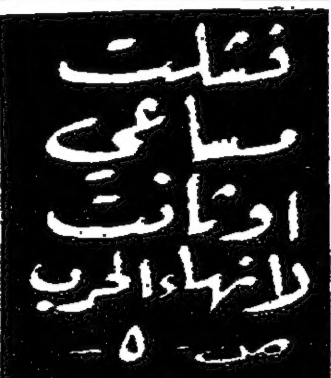 فشلت
مساعي
اوثانت
لانهاء الحرب
ص - ٥ -